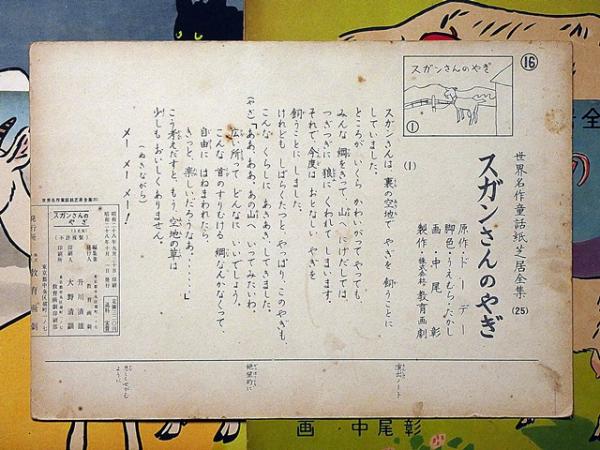 ⑯
スガンさんのやぎ
①
世界名作童話紙芝居全集 (25)
スガンさんのやぎ
原作・ドーデー
脚色・うえむら・たかし
画・中尾 彰
製作・株式会社 教育画劇
(1)
スガンさんは 裏の空地で やぎを 飼うことに
していました。
ところが、いくら かわいがってやっても、
みんな 綱をきって、山へ にげだしては、
つぎつぎに 狼に くわれて しまいます。
それで 今度は おとなしい やぎを
飼うことに しました。
けれども しばらくたつと、やっぱり、このやぎも、
こんな くらしに あきあきしてきました。
(やぎ)「ああ、ああ、あの山へ いってみたいわ。
広い所って どんなに いいでしょう。
こんな 首のすりむける 綱なんかなくって、
自由に はねまわれたら、
きっと、楽しいだろうなあ、・・・・・」
こう考えだすと、もう 空地の草は
少しも おいしくありません。
(ぬきながら)
メー メー メー!
演出ノート
絶望的に
思こせがむ
ように
世界名作童話紙芝居全集(25)
スガンさんの
やぎ
(不許複製)
発行所
教育画劇
画 中尾彰